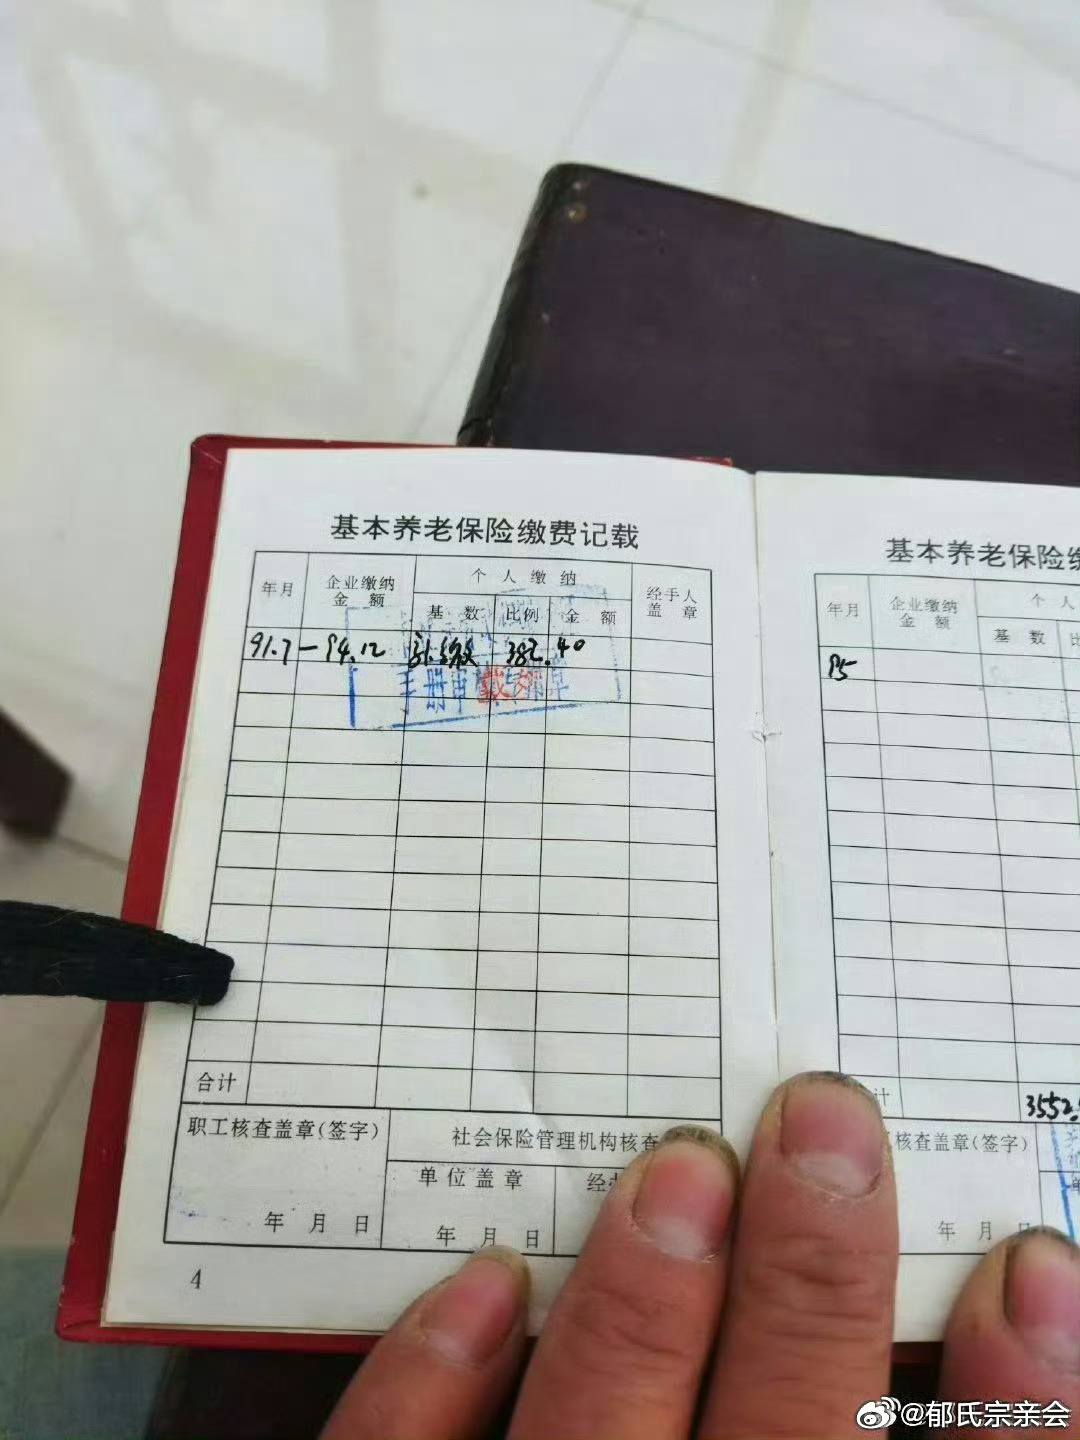 基本养老保险缴费记载
年月 企业缴纳金额 个人缴纳 经手人盖章
基数 比例 金额
91.7-94.12 382.40
手册审核专用章
合计
职工核查盖章(签字) 社会保险管理机构核查
单位盖章 经
年 月 日 年 月 日
4
基本养老保险
年月 企业缴纳金额 个人
基数
95
计 3552.
核查盖章(签字)
年 月
@郁氏宗亲会